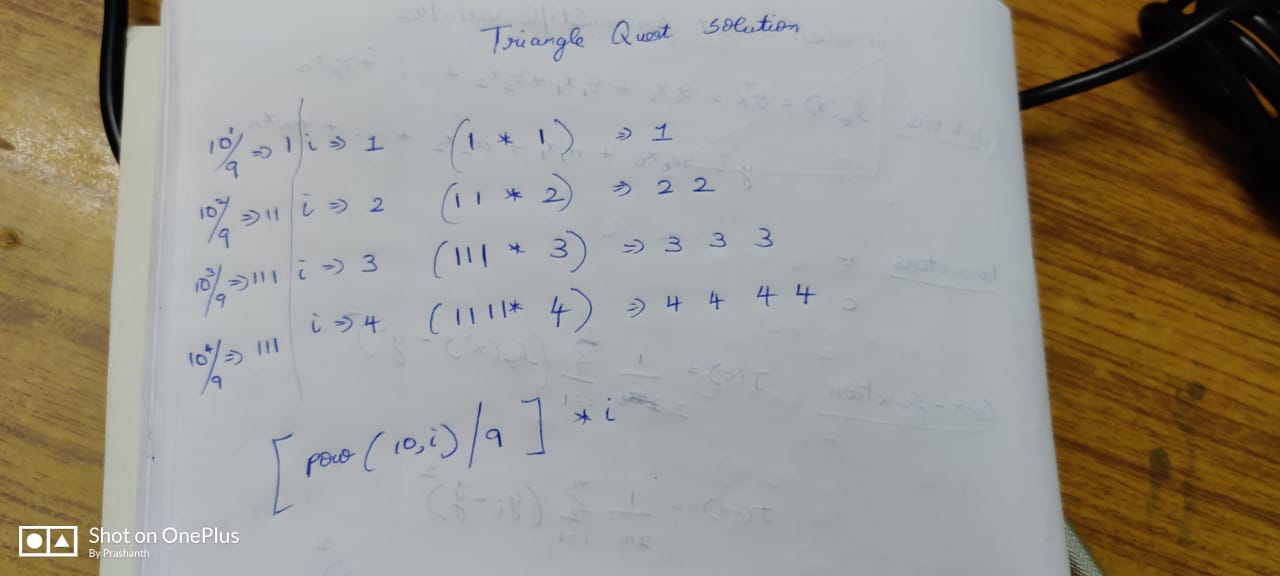 Triangle Quest solution
10^1/9 => 1 | i => 1 (1 * 1) => 1
10^2/9 => 11 | i => 2 (11 * 2) => 2 2
10^3/9 => 111 | i => 3 (111 * 3) => 3 3 3
i => 4 (1111 * 4) => 4 4 4 4
10^4/9 => 111
[pow(10,i)/9] * i
Shot on OnePlus
By Prashanth